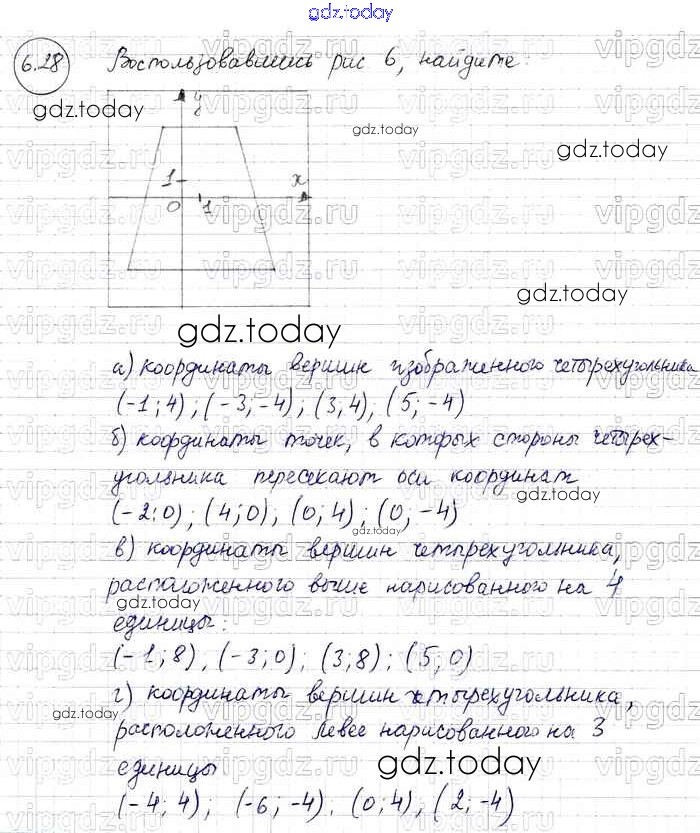 gdz.today
6.28 Воспользовавшись рис 6, найдите:
gdz.today
gdz.today
gdz.today
y
1
x
0 1
gdz.today
gdz.today
а) координаты вершин изображенного четырехугольника
(-1; 4); (-3; -4); (3, 4), (5; -4)
б) координаты точек, в которых стороны четырех-
угольника пересекают оси координат
gdz.today
(-2; 0); (4; 0), (0; 4); (0, -4)
gdz.today
в) координаты вершин четырехугольника,
расположенного выше нарисованного на 4
gdz.today
единицы:
(-1; 8), (-3; 0); (3; 8); (5; 0)
г) координаты вершин четырехугольника,
gdz.today
расположенного левее нарисованного на 3
единицы
gdz.today
(-4; 4); (-6; -4), (0; 4), (2; -4)
vipgdz.ru